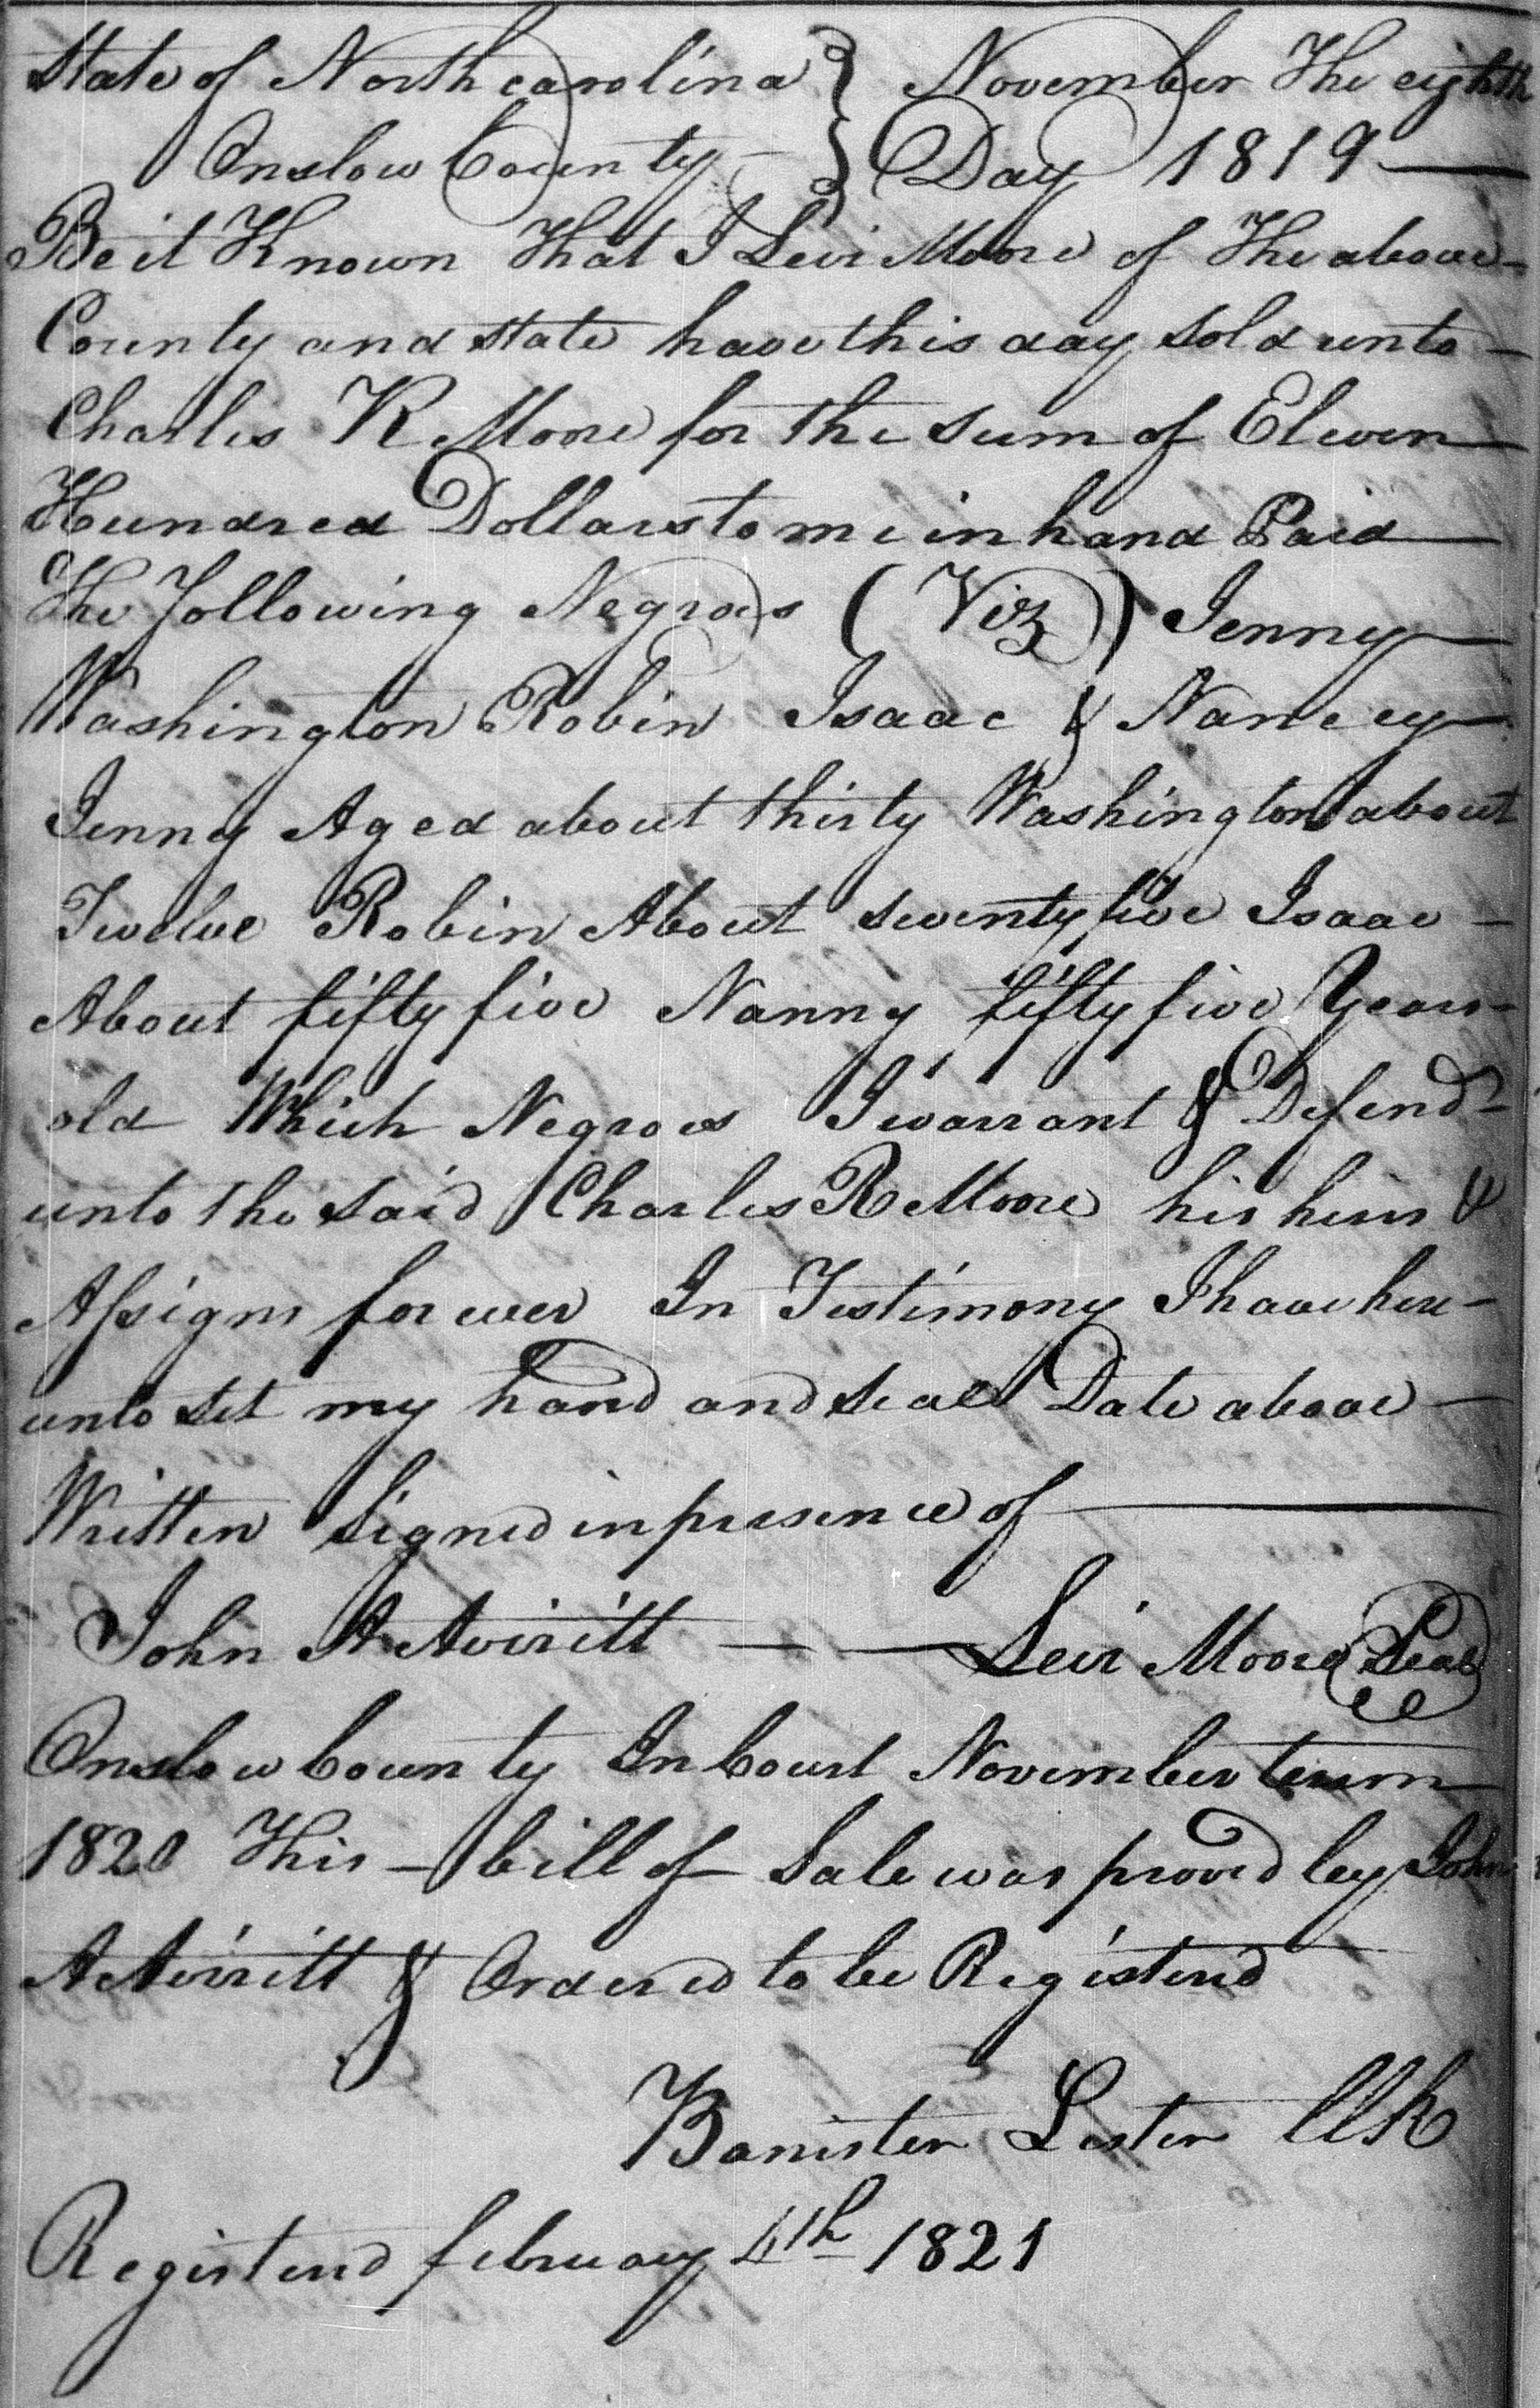 State of North carolina } November The eighth
Onslow County — } Day 1819 —
Be it Known That I Levi Moore of The above -
County and state have this day sold unto -
Charles R Moore for the sum of Eleven
Hundred Dollars to me in hand Paid
The following Negroes (Viz) Jenny
Washington Robin Isaac & Nancey
Jenny Aged about thirty Washington about
Twelve Robin About seventy five Isaac -
About fifty five Nanny fifty five Years -
old Which Negroes I warrant & Defend -
unto the said Charles R Moore his heirs &
Assigns for ever In Testimony I have here -
unto set my hand and seal Date above -
Written Signed in presence of —
John A Averitt — — Levi Moore Seal
Onslow County In Court November term
1820 This - bill of Sale was proved by John
A Averitt & Ordered to be Registered
Banister Lester Clk
Registered february 4th 1821